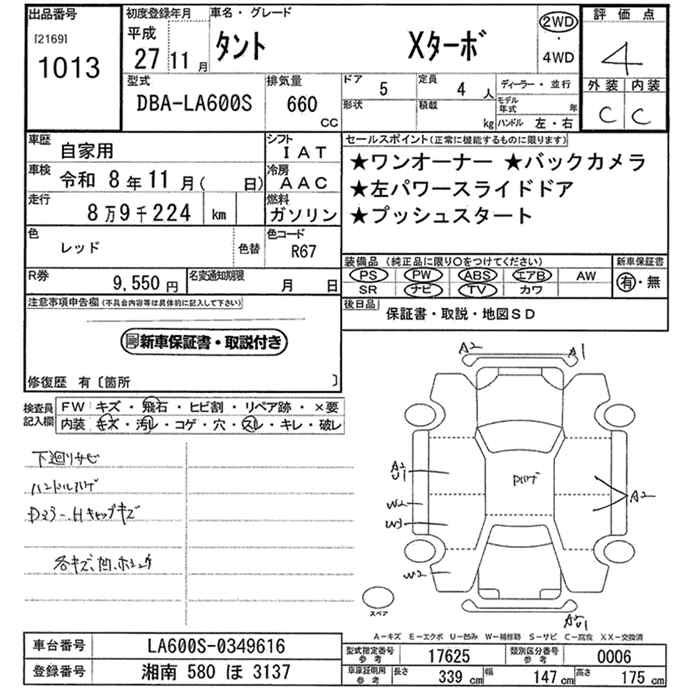 出品番号
[2169]
1013
初度登録年月
平成
27 11 月
車名・グレード
タント Xターボ
2WD
4WD
評価点
4
外装 内装
C C
型式
DBA-LA600S
排気量
660
CC
ドア 5
定員 4 人
形状
積載 kg
ディーラー・並行
モデル年式 年
ハンドル 左・右
車歴
自家用
シフト
IAT
車検
令和 8年11月( 日)
冷房
AAC
走行
8万9千224 km
燃料
ガソリン
色
レッド
色替
色コード
R67
R券
9,550円
名変通知期限
月 日
セールスポイント(正常に機能するものに限ります)
★ワンオーナー ★バックカメラ
★左パワースライドドア
★プッシュスタート
装備品(純正品に限り○をつけてください)
PS PW ABS エアB AW
SR ナビ TV カワ
新車保証書
有・無
後日品
保証書・取説・地図SD
注意事項申告欄(不具合内容等は具体的に記入して下さい)
新車保証書・取説付き
修復歴 有〔箇所 〕
検査員
記入欄
FW キズ・飛石・ヒビ割・リペア跡・×要
内装 キズ・汚レ・コゲ・穴・スレ・キレ・破レ
下廻りサビ
ハンドルハゲ
Dミラー、Hキャップキズ
各キズ、凹、
A2 A1
A2
U1
W2
W3
W2
Pハゲ
A2
A2
U1
スペア
A-キズ E-エクボ U-凹み W-補修跡 S-サビ C-腐食 XX-交換済
車台番号
LA600S-0349616
登録番号
湘南 580 ほ 3137
型式指定番号
参考
17625
類別区分番号
参考
0006
車庫証明用
参考
長さ 339 cm
幅 147 cm
高さ 175 cm